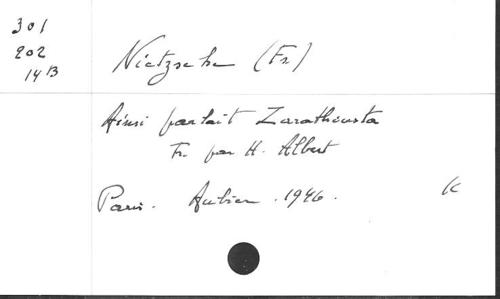 301
202
14B
Nietzsche (Fr.)
Ainsi parlait Zarathousta
Tr. par H. Albert
Paris. Aubier. 1946.
K